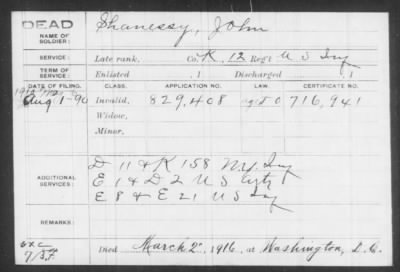 DEAD
NAME OF SOLDIER: Shanessy, John
SERVICE: Late rank, Co. K, 12 Reg't U S Inf
TERM OF SERVICE: Enlisted , 1 Discharged , 1
DATE OF FILING. CLASS. APPLICATION NO. LAW. CERTIFICATE NO.
Aug 1-90 Invalid, 829,408 716,941
Widow,
Minor,
ADDITIONAL SERVICES:
D 11 & K 158 N.Y. Inf
E 1 & D 2 U S Arty
E 8 & E 21 U S Inf
REMARKS:
Died March 2, 1916, at Washington, D.C.